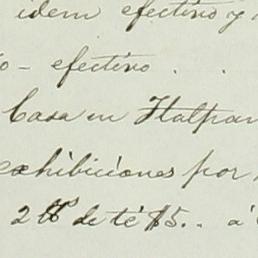 idem efectivo y
o - efectivo . .
Casa en Ytalpan
exhibiciones por
2 lbs de té $5.. á